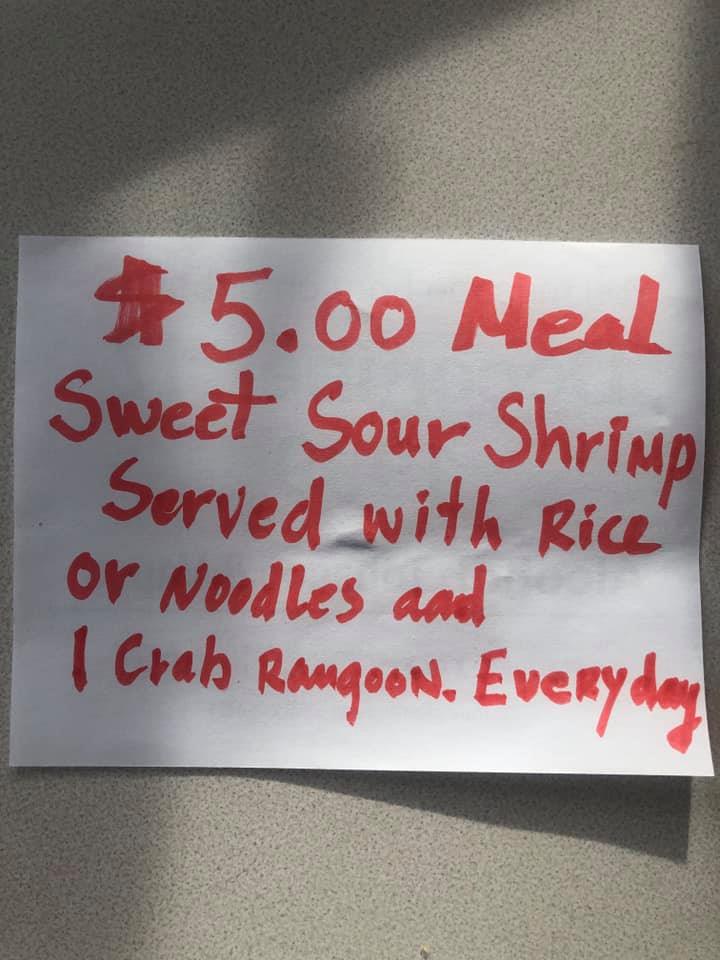 $5.00 Meal
Sweet Sour Shrimp
Served with Rice
or Noodles and
1 Crab Rangoon. Everyday